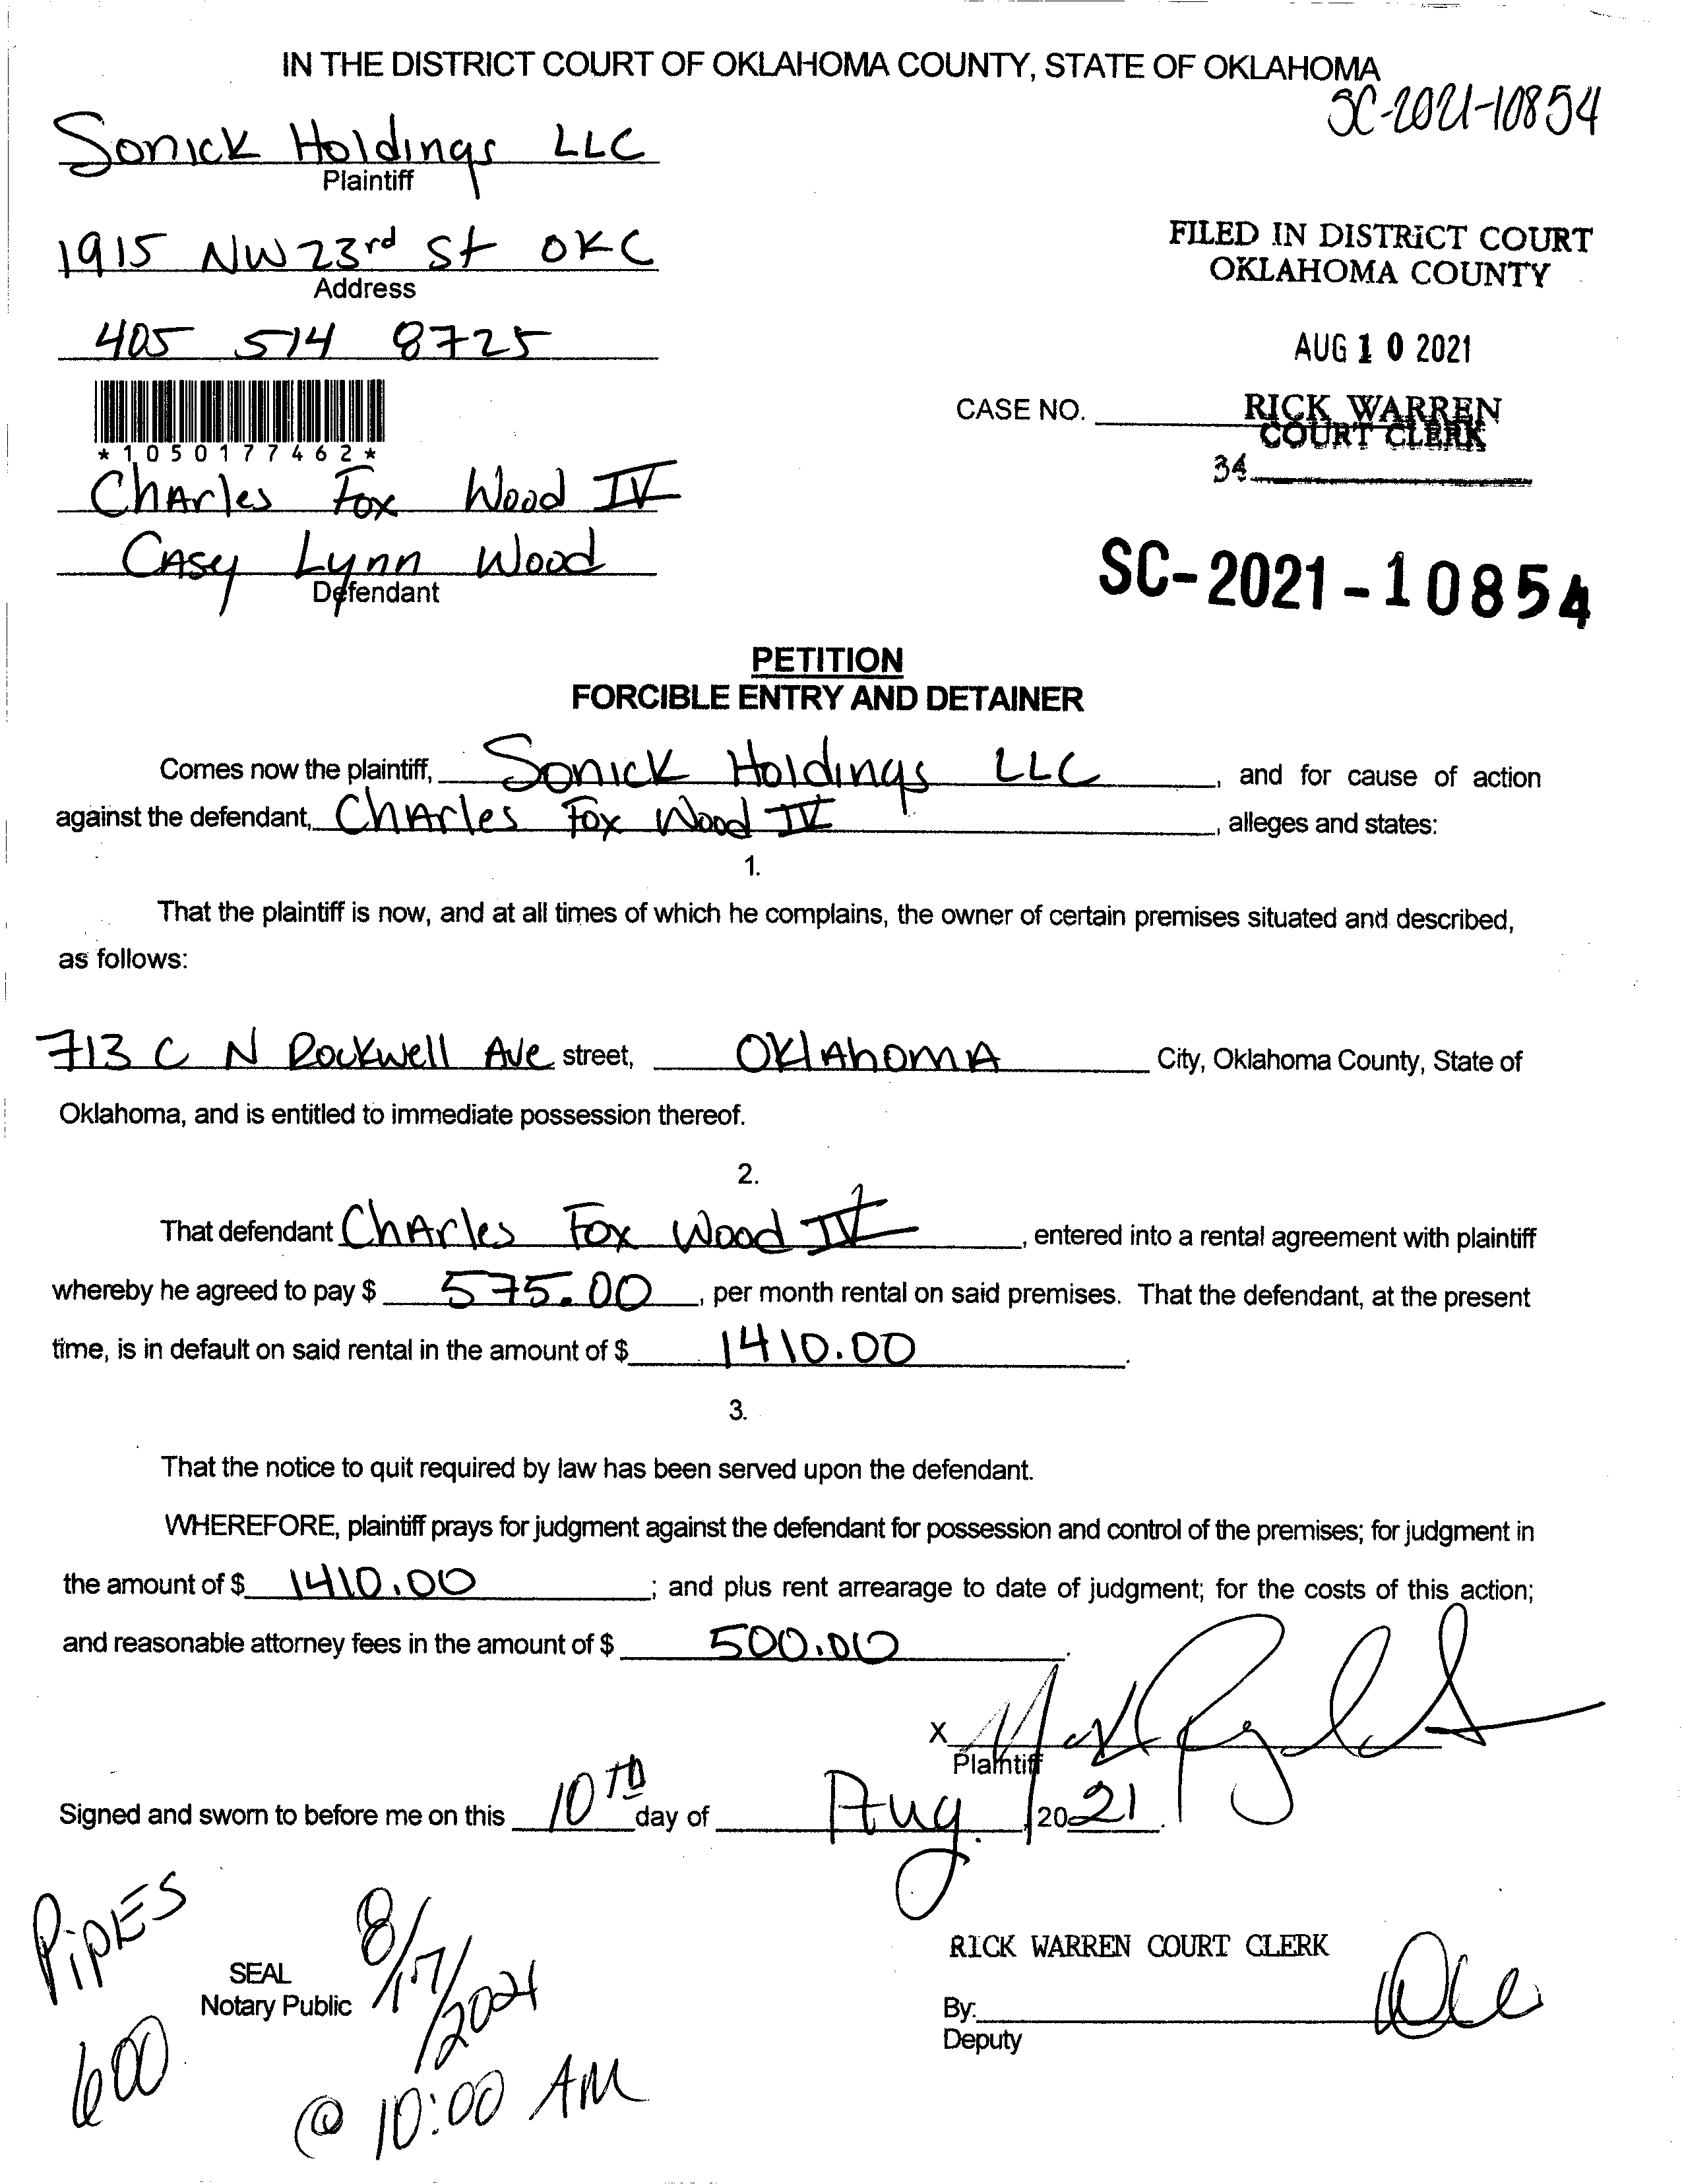 IN THE DISTRICT COURT OF OKLAHOMA COUNTY, STATE OF OKLAHOMA
SC-2021-10854
Sonick Holdings LLC
Plaintiff
1915 NW 23rd St OKC
Address
405 514 8725
FILED IN DISTRICT COURT
OKLAHOMA COUNTY
AUG 10 2021
CASE NO.
RICK WARREN
COURT CLERK
34
*1050177462*
Charles Fox Wood IV
Casey Lynn Wood
Defendant
SC-2021-10854
PETITION
FORCIBLE ENTRY AND DETAINER
Comes now the plaintiff, Sonick Holdings LLC, and for cause of action
against the defendant, Charles Fox Wood IV, alleges and states:
1.
That the plaintiff is now, and at all times of which he complains, the owner of certain premises situated and described,
as follows:
713 C N Rockwell Ave street, OKlAhomA City, Oklahoma County, State of
Oklahoma, and is entitled to immediate possession thereof.
2.
That defendant Charles Fox Wood IV, entered into a rental agreement with plaintiff
whereby he agreed to pay $ 575.00, per month rental on said premises. That the defendant, at the present
time, is in default on said rental in the amount of $ 1410.00.
3.
That the notice to quit required by law has been served upon the defendant.
WHEREFORE, plaintiff prays for judgment against the defendant for possession and control of the premises; for judgment in
the amount of $ 1410.00; and plus rent arrearage to date of judgment; for the costs of this action;
and reasonable attorney fees in the amount of $ 500.00.
X
Plaintiff
Signed and sworn to before me on this 10TH day of Aug., 2021.
PIPES
600
SEAL
Notary Public
8/17/2021
@ 10:00 AM
RICK WARREN COURT CLERK
By:
Deputy